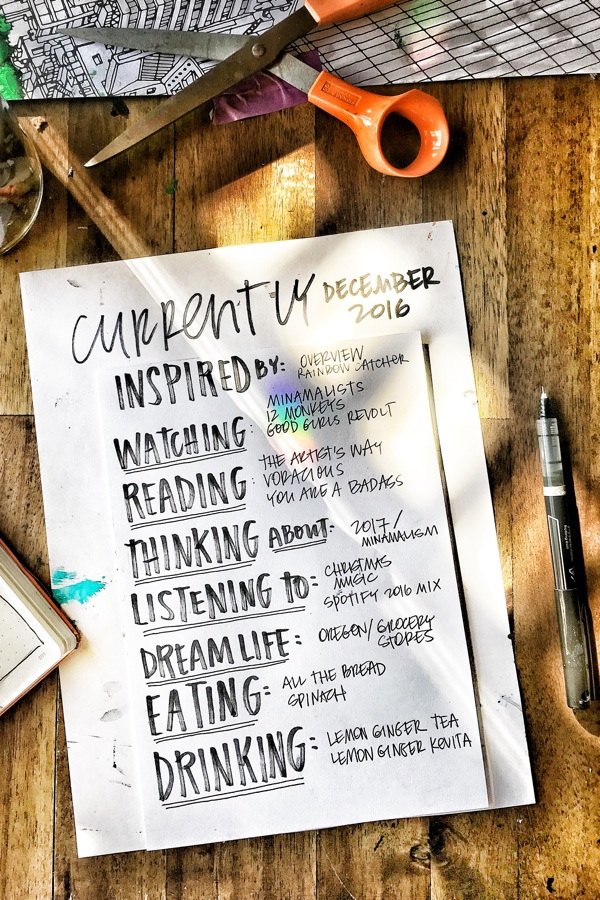 CURRENTLY DECEMBER
2016
INSPIRED BY: OVERVIEW
RAINBOW CATCHER
WATCHING: MINAMALISTS
12 MONKEYS
GOOD GIRLS REVOLT
READING: THE ARTIST'S WAY
VORACIOUS
YOU ARE A BADASS
THINKING ABOUT: 2017/
MINAMALISM
LISTENING to: CHRISTMAS
MUSIC
SPOTIFY 2016 MIX
DREAM LIFE: OREGEN/GROCERY
STORES
EATING: ALL THE BREAD
SPINACH
DRINKING: LEMON GINGER TEA
LEMON GINGER KEVITA